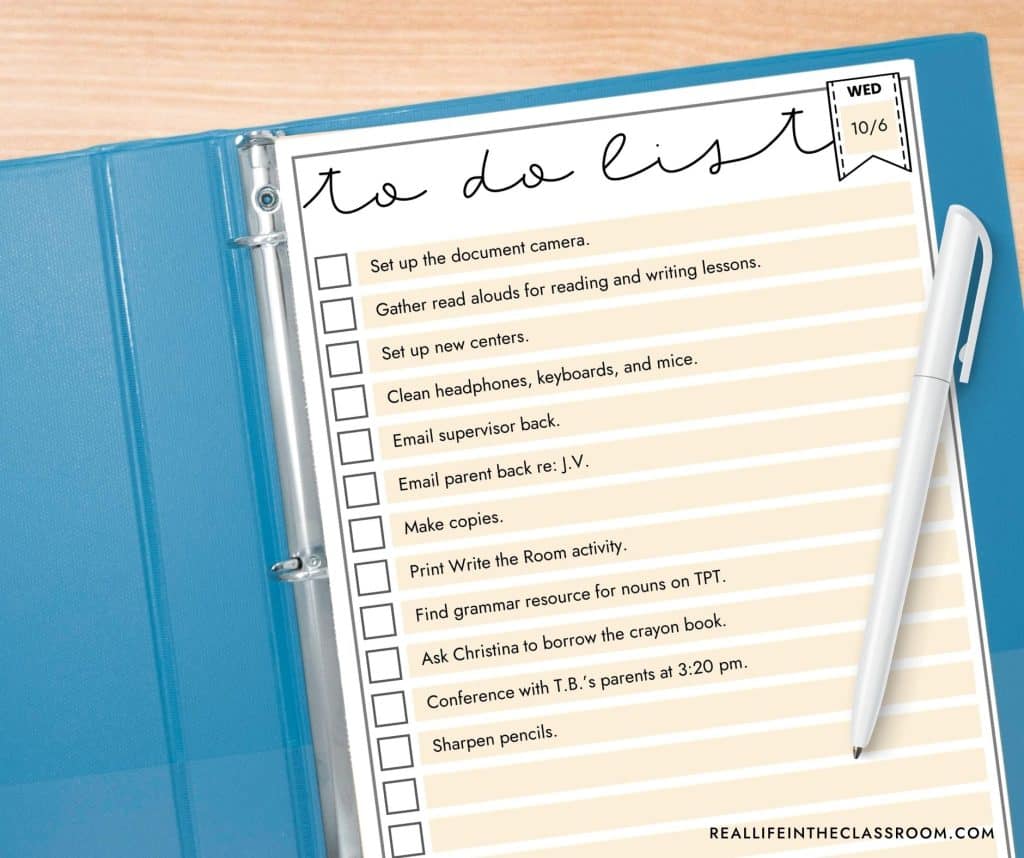 to do list
WED
10/6
Set up the document camera.
Gather read alouds for reading and writing lessons.
Set up new centers.
Clean headphones, keyboards, and mice.
Email supervisor back.
Email parent back re: J.V.
Make copies.
Print Write the Room activity.
Find grammar resource for nouns on TPT.
Ask Christina to borrow the crayon book.
Conference with T.B.'s parents at 3:20 pm.
Sharpen pencils.
REALLIFEINTHECLASSROOM.COM